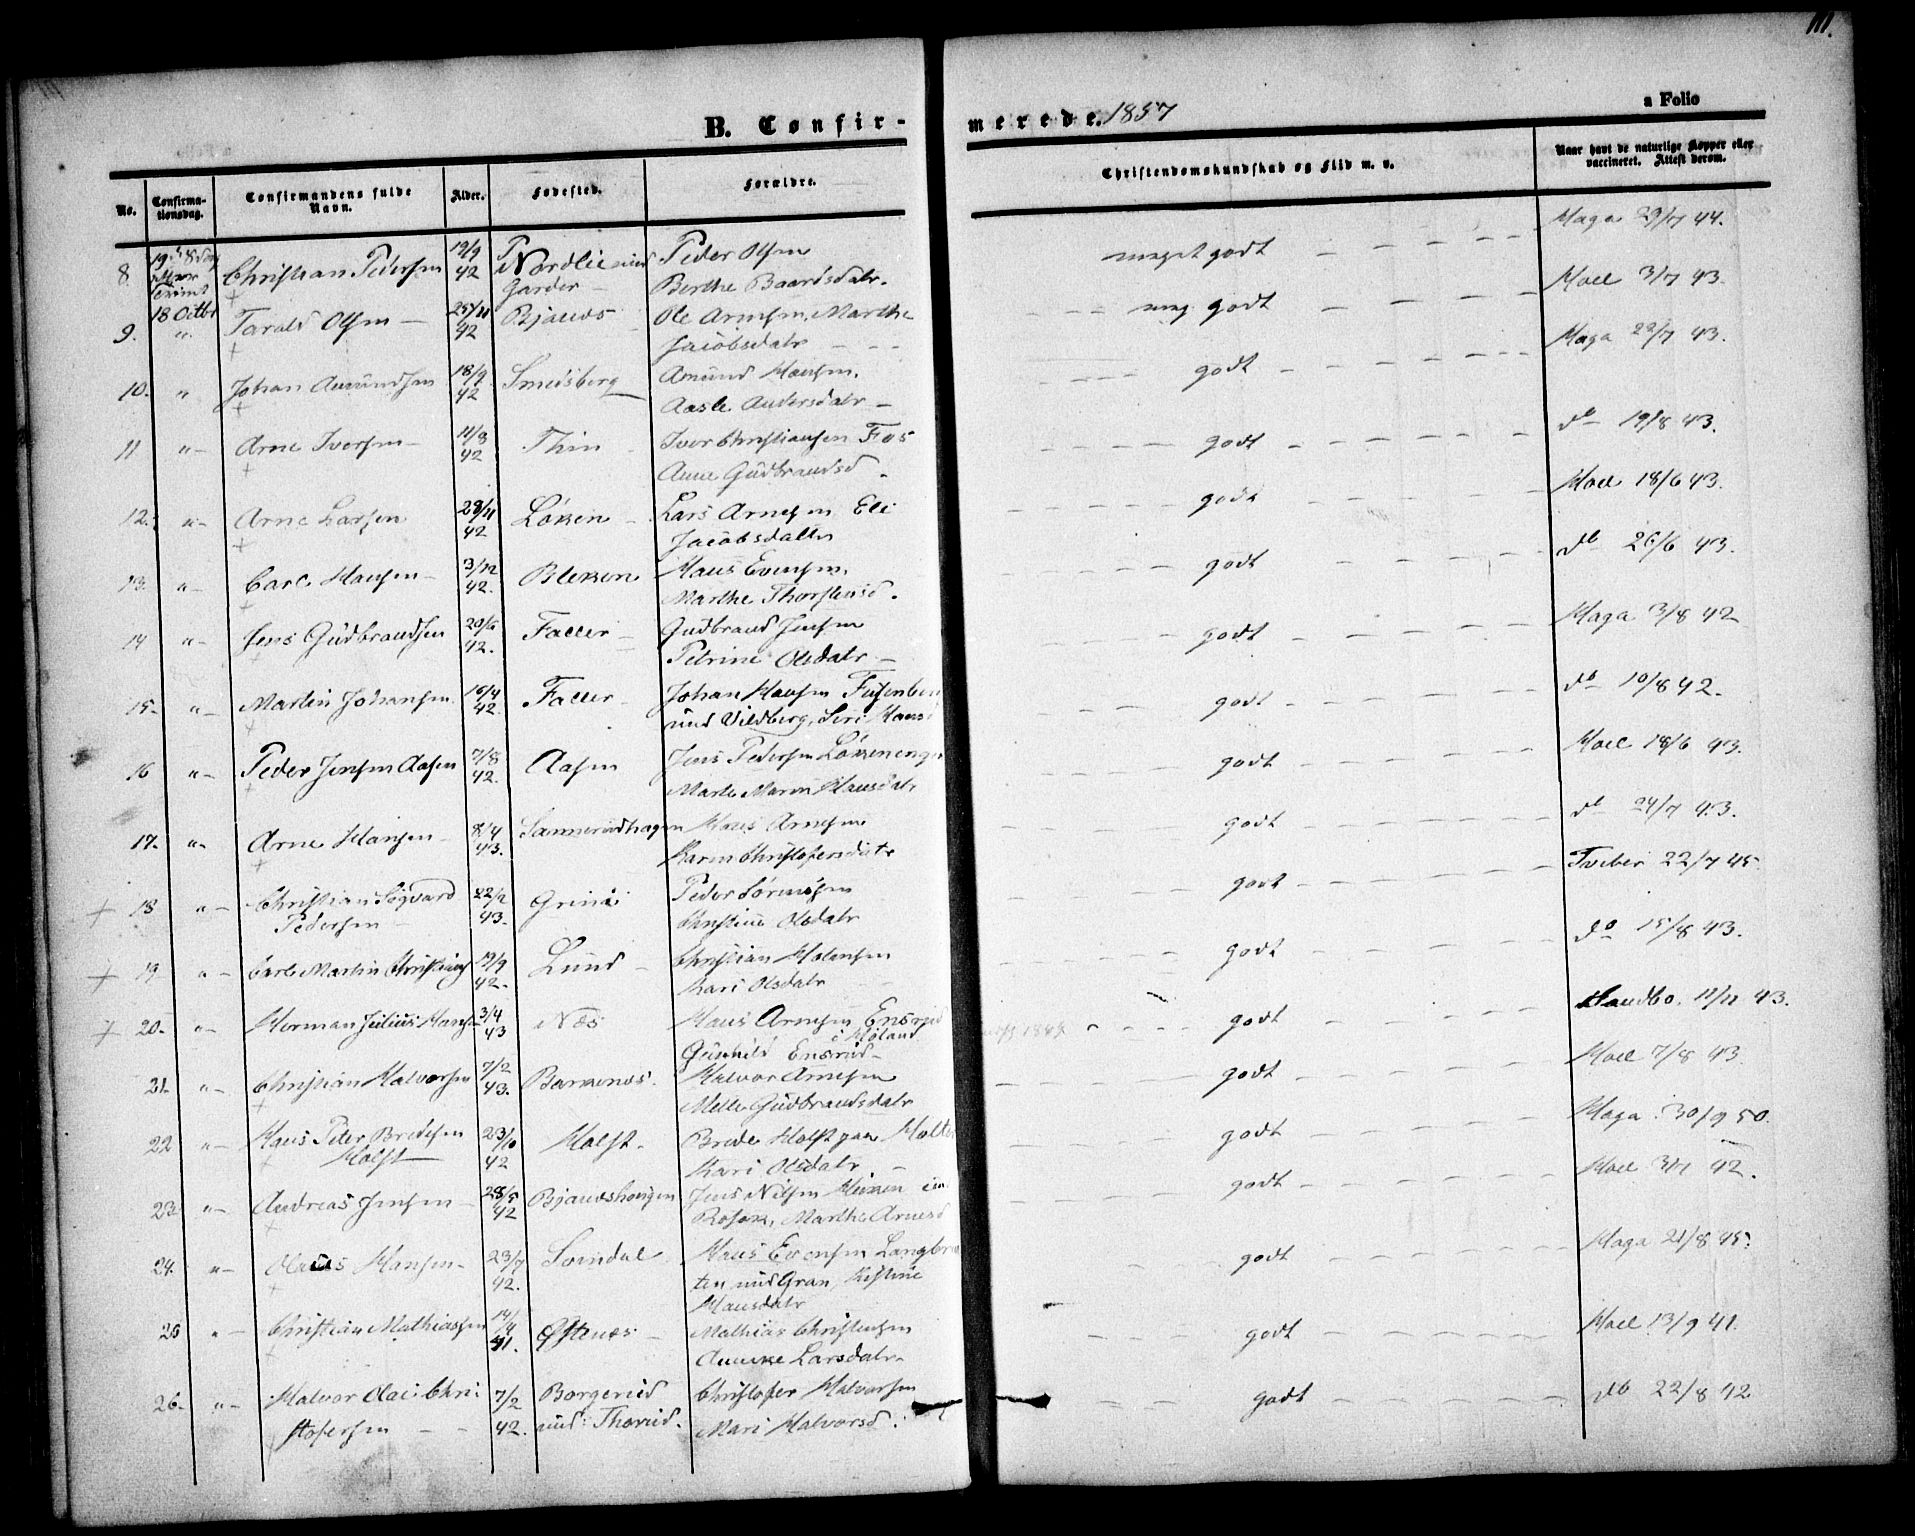 111.
B. Confir-
merede. 1857
a Folio
No.
Confirma-
tionsdag.
Confirmandens fulde
Navn.
Alder.
Fødested.
Forældre.
Christendomskundskab og Flid m. v.
Naar havt de naturlige Kopper eller
vaccineret. Attest derom.
8. Christian Pedersen 19/9 42 Nordlie und Garder Peder Olsen
Berthe Baardsdatr. meget godt Maga 29/7 44.
18 Octbr
9. " Tarald Olsen 25/11 42 Bjanæs Ole Arnesen, Marthe
Jacobsdatr meg godt Moel 3/7 43.
10. " Johan Amundsen 18/9 42 Smedsberg Amund Hansen.
Aasle Andersdatr godt Maga 22/7 43.
11 " Arne Iversen 11/8 42 Thin Iver Christiansen Fos
Anne Gudbrandsd godt do 19/8 43.
12. " Arne Larsen 28/11 42 Løken Lars Arnesen Eli
Jacobsdatter godt Moel 18/6 43.
13. " Carl Hansen 3/12 42. Bleken Hans Evensen.
Marthe Thorstensd. godt do 26/6 43.
14 " Jens Gudbrandsen 20/6 42. Faller Gudbrand Jensen
Petrine Olsdatr godt Maga 3/8 42
15. " Martin Johansen 16/4 42. Faller Johan Hansen
und Vildberg, Siri Hansd godt do 10/8 42.
16 " Peder Jensen Aasen 7/8 42. Aasen Jens Pedersen Løkenengen
Marte Maren Hansdatr godt Moel 18/6 43.
17. " Arne Hansen 8/4 43. Sannerudhagen Hans Arnesen
Karen Christofersdatr godt do 24/7 43.
18 " Christian Sigvard
Pedersen 22/2 43. Peder Sørensen
Christine Olsdatr godt 22/7 45.
19 " Carl Martin Christians 19/9 42. Lund Christian
Kari Olsdatr godt do 15/8 43.
20. " Herman Julius Hansen 3/4 43 Næs Hans Arnesen Ensrud
i Høland
Gunhild Ensrud godt 11/11 43.
21. " Christian Halvorsen 7/2 43. Barkenæs. Halvor Arnesen
Mette Gudbrandsdatr godt Moel 7/8 43
22 " Hans Peter Bredesen
Holst 23/10 42 Holst. Brede Holst paa Holter
Kari Olsdatr godt Maga 30/9 50.
23. " Andreas Jensen 28/5 42 Bjanæshougen Jens Nilsen
Marthe Arnesd godt Moel 3/7 42.
24. " Hansen 23/7 42. Sorndal Hans Evensen
und Gran, Kistine
Hansdatr godt Maga 21/8 45.
25 " Christian Mathiassen 14/4 41. Østnæs Mathias Christensen
Annike Larsdatr. godt Moel 13/9 41.
26. " Halvor Olai Chri
stofersen 7/2 42. Borgerud
und Thorud. Christofer Halvorsen
Mari Halvorsd. godt do 22/8 42